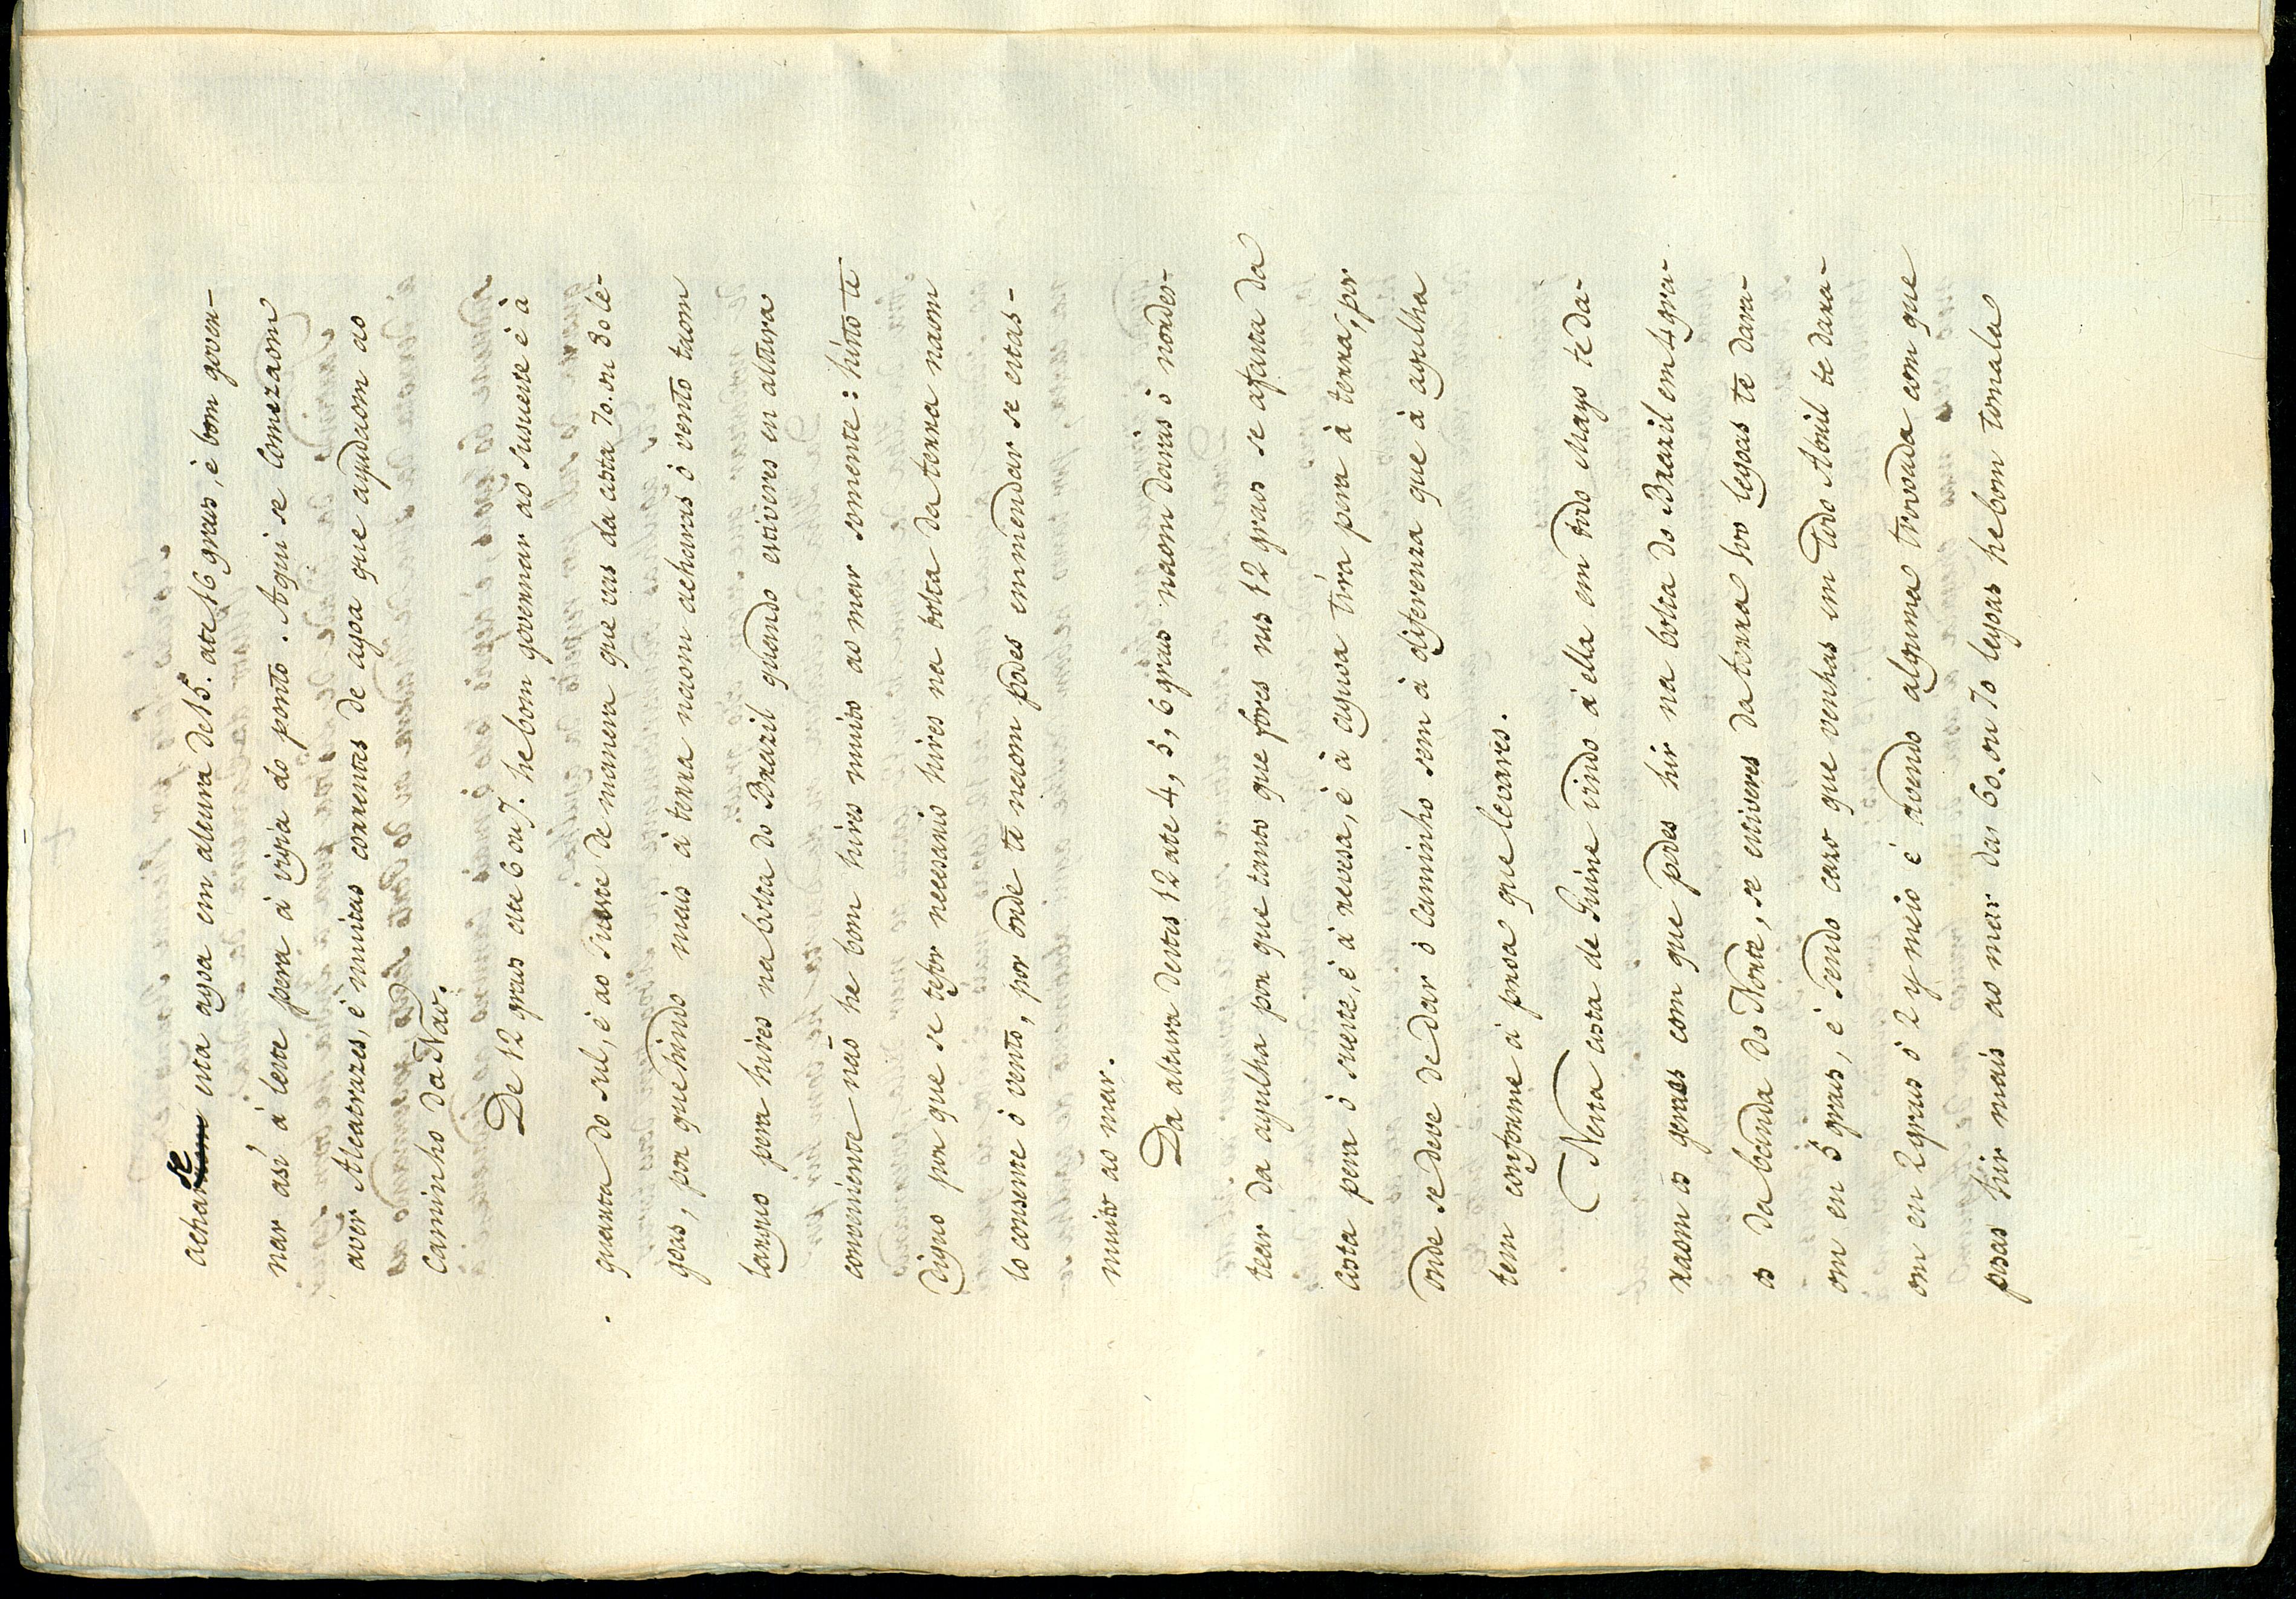 acharse esta agoa em altura de 15. ate 16 graus, é bom gover-
nar asi á leste pera á vigia do ponto. Aqui se comezaom
aver Alcatrazes, é muitas correntes de agoa que ajudaom ao
Caminho da Não.
De 12 graus ate 6 ou 7. he bom governar ao susueste é à
quarta do sul, é ao sueste de manera que vas da costa 70. ou 80 lé-
goas, por que hindo mais á terra naom acharas ó vento taom
largo pera hires na volta do Brazil quando estiveres en altura
conviniente não he bom hires muito ao mar somente: hinto te
digno por que se te for necesario hires na volta da terra naom
to consente ó vento, por onde te naom podes enmendar se estas-
muito ao mar.
Da altura destos 12 ate 4, 5, 6 graus naom daras ó nordes-
tear da agulha por que tanto que fores nos 12 graus se afasta da
Costa pera ó sueste, é á revesa, é à agoa tira pera à terra, por
onde se deve de dar ó Caminho sem à diferenza que à agulha
tem conforme á proa que levares.
Nesta costa de Guine vindo á ella em todo Mayo te da-
raom os geraes com que podes hir na volta do Brazil em 4 gra-
os da banda do Norte, se estiveres da terra 100 legoas te dara-
om en 5 graus, é Sendo caso que venhas em todo Abril te dara-
om en 2 graus ó 2 y meio é avendo alguma trovoada com que
posas hir mais ao mar das 60. ou 70 legoas he bom tomala